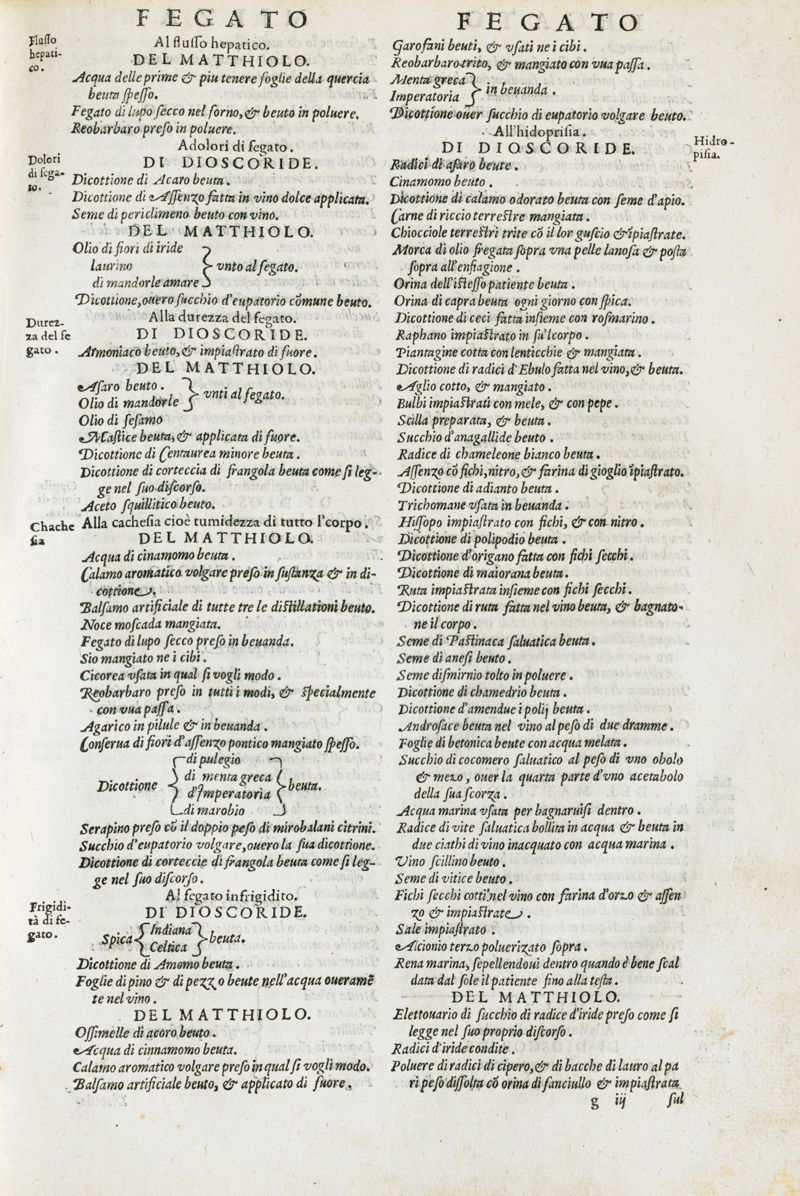 FEGATO
Flusso
hepati-
co.
Al flusso hepatico.
DEL MATTHIOLO.
Acqua delle prime & piu tenere foglie della quercia
beuta spesso.
Fegato di lupo secco nel forno, & beuto in poluere.
Reobarbaro preso in poluere.
Dolori
di fega-
to.
A dolori di fegato.
DI DIOSCORIDE.
Dicottione di Acaro beuta.
Dicottione di Assenzo fatta in vino dolce applicata.
Seme di periclimeno beuto con vino.
DEL MATTHIOLO.
Olio di fiori di iride
laurino
di mandorle amare
vnto al fegato.
Dicottione, ouero succhio d'eupatorio cõmune beuto.
Durez-
za del fe
gato.
Alla durezza del fegato.
DI DIOSCORIDE.
Armoniaco beuto, & impiastrato di fuore.
DEL MATTHIOLO.
Asaro beuto.
Olio di mandorle
vnti al fegato.
Olio di sesamo
Mastice beuta, & applicata di fuore.
Dicottione di Centaurea minore beuta.
Dicottione di corteccia di frangola beuta come si leg-
ge nel suo discorso.
Aceto squillitico beuto.
Chache
sia
Alla cachesia cioè tumidezza di tutto l'corpo.
DEL MATTHIOLO.
Acqua di cinamomo beuta.
Calamo aromatico volgare preso in sustanza & in di-
cottione.
Balsamo artificiale di tutte tre le distillationi beuto.
Noce moscada mangiata.
Fegato di lupo secco preso in beuanda.
Sio mangiato ne i cibi.
Cicorea vsata in qual si vogli modo.
Reobarbaro preso in tutti i modi, & specialmente
con vua passa.
Agarico in pilule & in beuanda.
Conserua di fiori d'assenzo pontico mangiato spesso.
Dicottione
di pulegio
di menta greca
d'Imperatoria
di marobio
beuta.
Serapino preso cõ il doppio peso di mirobalani citrini.
Succhio d'eupatorio volgare, ouero la sua dicottione.
Dicottione di corteccie di frangola beuta come si leg-
ge nel suo discorso.
Frigidi-
tà di fe-
gato.
Al fegato infrigidito.
DI DIOSCORIDE.
Spica
Indiana
Celtica
beuta.
Dicottione di Amomo beuta.
Foglie di pino & di pezzo beute nell'acqua oueramẽ
te nel vino.
DEL MATTHIOLO.
Ossimelle di acoro beuto.
Acqua di cinnamomo beuta.
Calamo aromatico volgare preso in qual si vogli modo.
Balsamo artificiale beuto, & applicato di fuore.
FEGATO
Garofani beuti, & vsati ne i cibi.
Reobarbaro trito, & mangiato con vua passa.
Menta greca
Imperatoria
in beuanda.
Dicottione ouer succhio di eupatorio volgare beuto.
All'hidoprisia.
Hidro-
pisia.
DI DIOSCORIDE.
Radici di asaro beute.
Cinamomo beuto.
Dicottione di calamo odorato beuta con seme d'apio.
Carne di riccio terrestre mangiata.
Chiocciole terrestri trite cõ il lor guscio & ĩpiastrate.
Morca di olio fregata sopra vna pelle lanosa & posta
sopra all'enfiagione.
Orina dell'istesso patiente beuta.
Orina di capra beuta ogni giorno con spica.
Dicottione di ceci fatta insieme con rosmarino.
Raphano impiastrato in su'l corpo.
Piantagine cotta con lenticchie & mangiata.
Dicottione di radici d'Ebulo fatta nel vino, & beuta.
Aglio cotto, & mangiato.
Bulbi impiastrati con mele, & con pepe.
Scilla preparata, & beuta.
Succhio d'anagallide beuto.
Radice di chameleone bianco beuta.
Assenzo cõ fichi, nitro, & farina di gioglio ĩpiastrato.
Dicottione di adianto beuta.
Trichomane vsata in beuanda.
Hissopo impiastrato con fichi, & con nitro.
Dicottione di polipodio beuta.
Dicottione d'origano fatta con fichi secchi.
Dicottione di maiorana beuta.
Ruta impiastrata insieme con fichi secchi.
Dicottione di ruta fatta nel vino beuta, & bagnato-
ne il corpo.
Seme di Pastinaca saluatica beuta.
Seme di anesi beuto.
Seme di smirnio tolto in poluere.
Dicottione di chamedrio beuta.
Dicottione d'amendue i polij beuta.
Androsace beuta nel vino al peso di due dramme.
Foglie di betonica beute con acqua melata.
Succhio di cocomero saluatico al peso di vno obolo
& mezo, ouer la quarta parte d'vno acetabolo
della sua scorza.
Acqua marina vsata per bagnaruisi dentro.
Radice di vite saluatica bollita in acqua & beuta in
due ciathi di vino inacquato con acqua marina.
Vino scillino beuto.
Seme di vitice beuto.
Fichi secchi cotti nel vino con farina d'orzo & assen
zo & impiastrate.
Sale impiastrato.
Alcionio terzo poluerizato sopra.
Rena marina, sepellendoui dentro quando è bene scal
data dal sole il patiente fino alla testa.
DEL MATTHIOLO.
Elettouario di succhio di radice d'iride preso come si
legge nel suo proprio discorso.
Radici d'iride condite.
Poluere di radici di cipero, & di bacche di lauro al pa
ri peso dissolta cõ orina di fanciullo & impiastrata
g iij sul